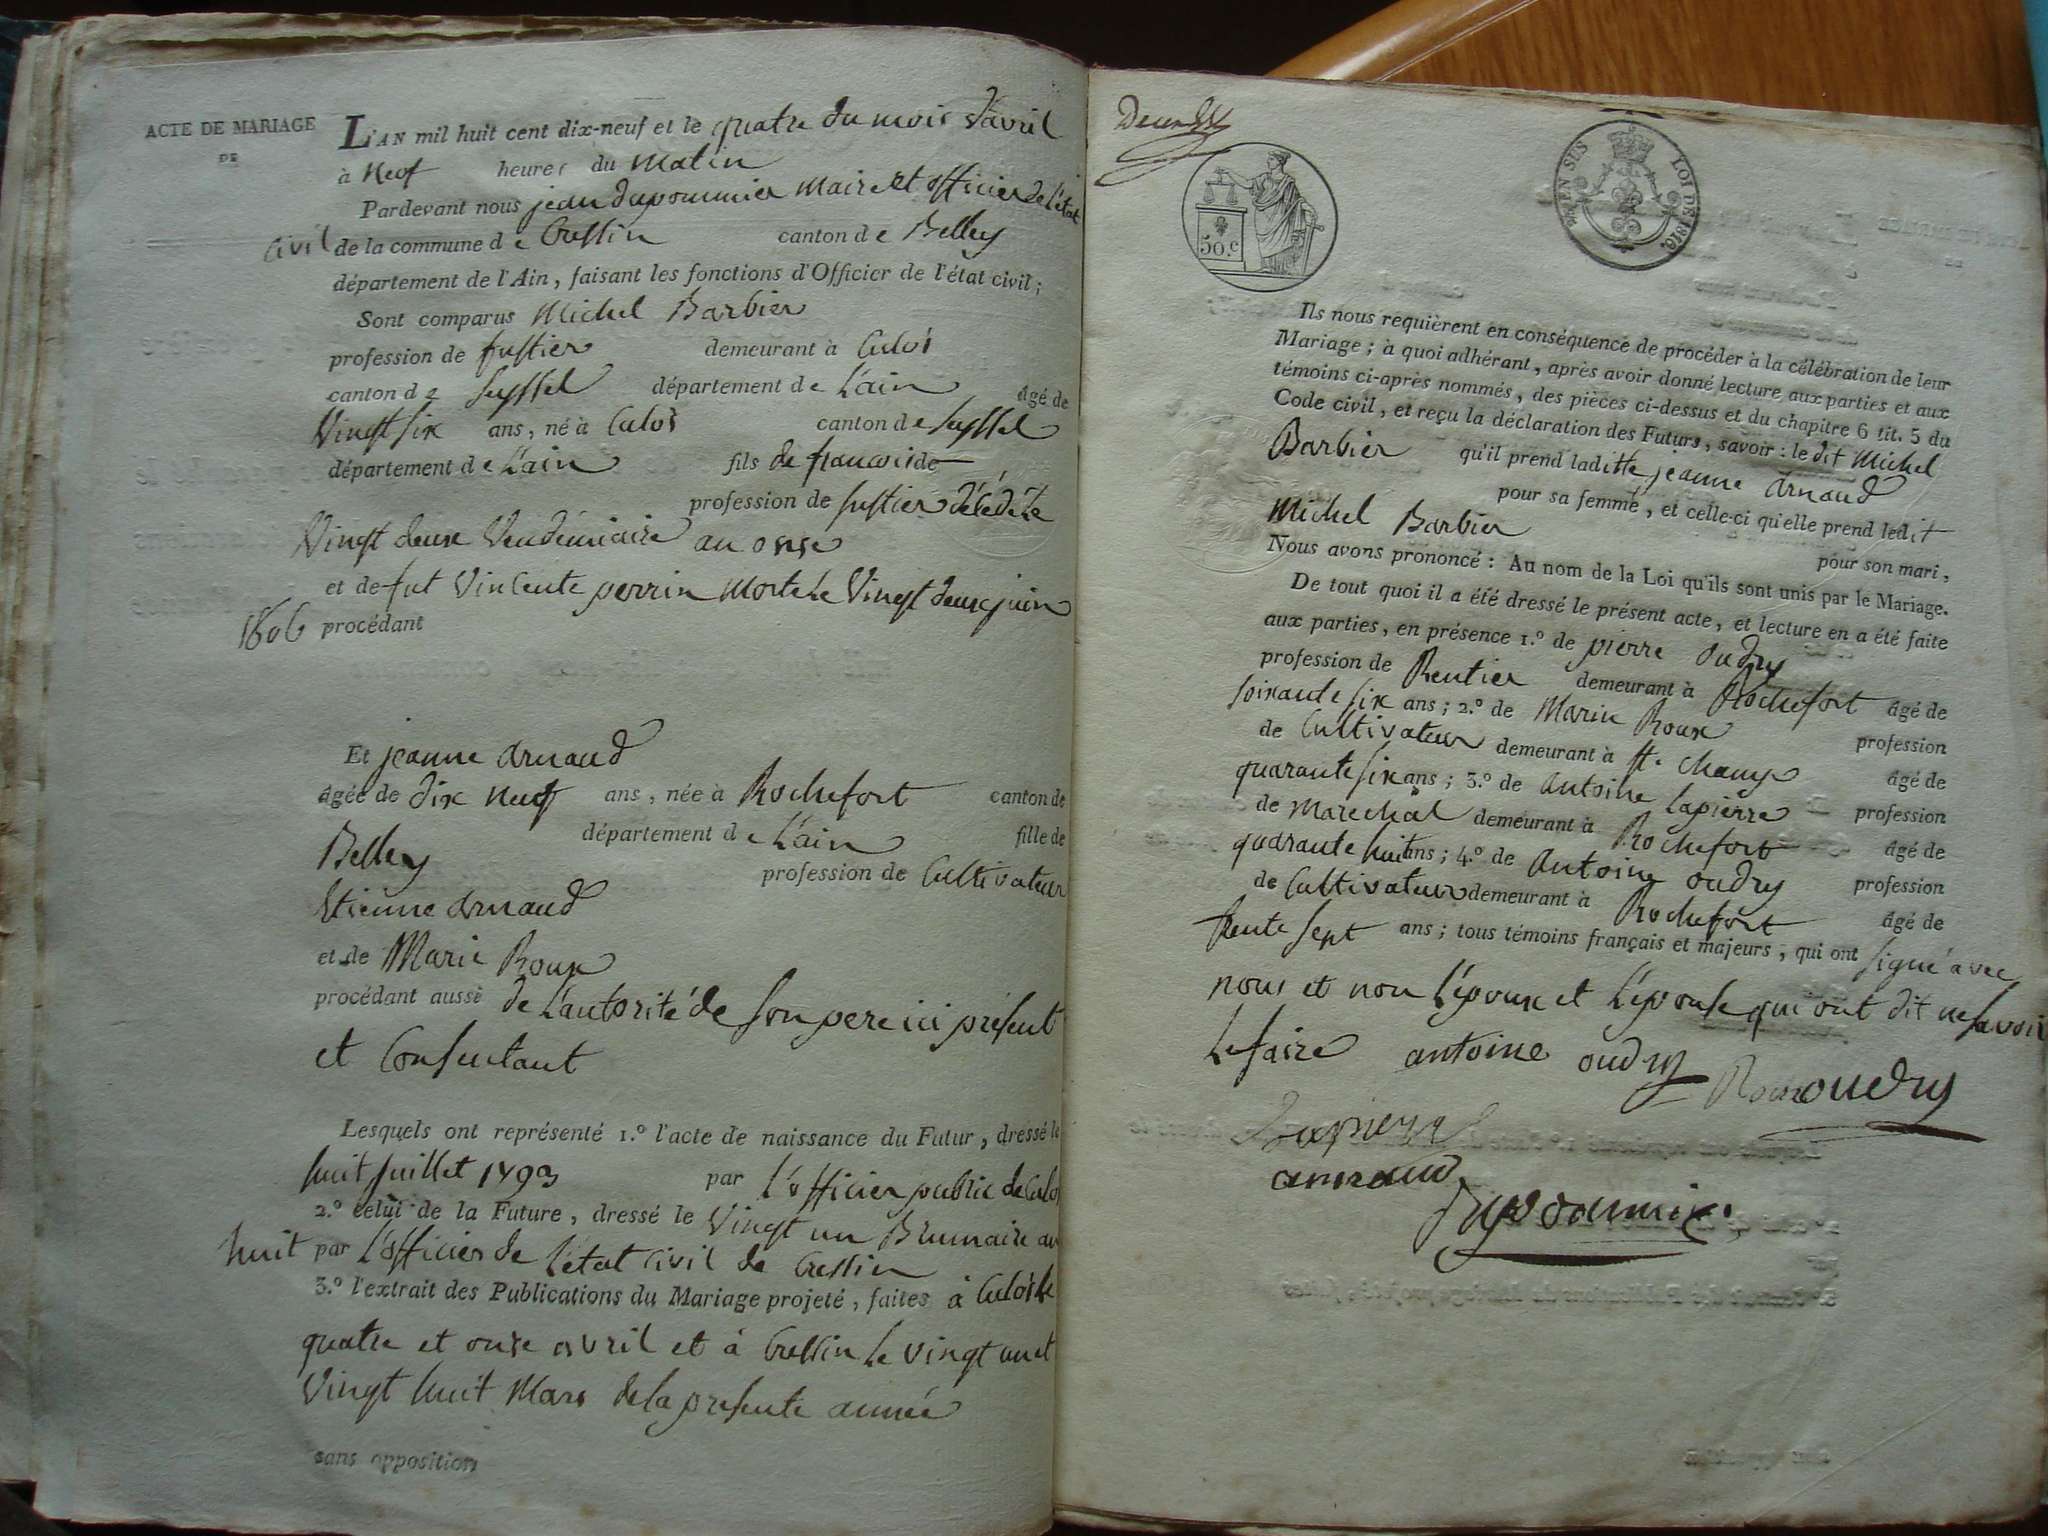 ACTE DE MARIAGE
DE
L'AN mil huit cent dix-neuf et le quatre du mois d'avril
à Neof heures du matin
Pardevant nous jean dupommier maire et officier de l'état
civil de la commune de Cressin canton de Belley
département de l'Ain, faisant les fonctions d'Officier de l'état civil;
Sont comparus Michel Barbier
profession de fustier demeurant à Culoz
canton de Seyssel département de L'ain âgé de
Vingt six ans, né à Culoz canton de Seyssel
département de L'ain fils de francois de
profession de fustier décédé le
Vingt deux Vendémiaire an onse
et de fut Vincente perrin Morte le Vingt deux juin
1806 procédant
Et jeanne arnaud
âgée de dix neuf ans, née à Rochefort canton de
Belley département de L'ain fille de
Etienne arnaud profession de Cultivateur
et de Marie Roux
procédant aussi de L'autorité de son pere ici présent
et Consentant
Lesquels ont représenté 1.º l'acte de naissance du Futur, dressé le
huit Juillet 1793 par L'officier public de Culoz
2.º celui de la Future, dressé le Vingt un Brumaire an
huit par L'officier de L'état civil de Cressin
3.º l'extrait des Publications du Mariage projeté, faites à Culoz le
quatre et onse avril et à Cressin le vingt un et
Vingt huit Mars de la presente année
sans opposition
50.c
EN SUS LOI DE 1816.
Ils nous requièrent en conséquence de procéder à la célébration de leur
Mariage; à quoi adhérant, après avoir donné lecture aux parties et aux
témoins ci-après nommés, des pièces ci-dessus et du chapitre 6 tit. 5 du
Code civil, et reçu la déclaration des Futurs, savoir: le dit Michel
Barbier qu'il prend laditte jeanne arnaud
pour sa femme, et celle-ci qu'elle prend ledit
Michel Barbier pour son mari,
Nous avons prononcé: Au nom de la Loi qu'ils sont unis par le Mariage.
De tout quoi il a été dressé le présent acte, et lecture en a été faite
aux parties, en présence 1.º de pierre oudry
profession de Rentier demeurant à Rochefort âgé de
soixante six ans; 2.º de Marin Roux profession
de Cultivateur demeurant à st. champ âgé de
quarante six ans; 3.º de antoine Lapierre profession
de Marechal demeurant à Rochefort âgé de
quarante huit ans; 4.º de antoine oudry profession
de Cultivateur demeurant à Rochefort âgé de
trente sept ans; tous témoins français et majeurs, qui ont signé avec
nous et non L'époux et L'épouse qui ont dit ne savoir
Le faire antoine oudry Roux oudry
Lapierre
arnaud
Dupommier